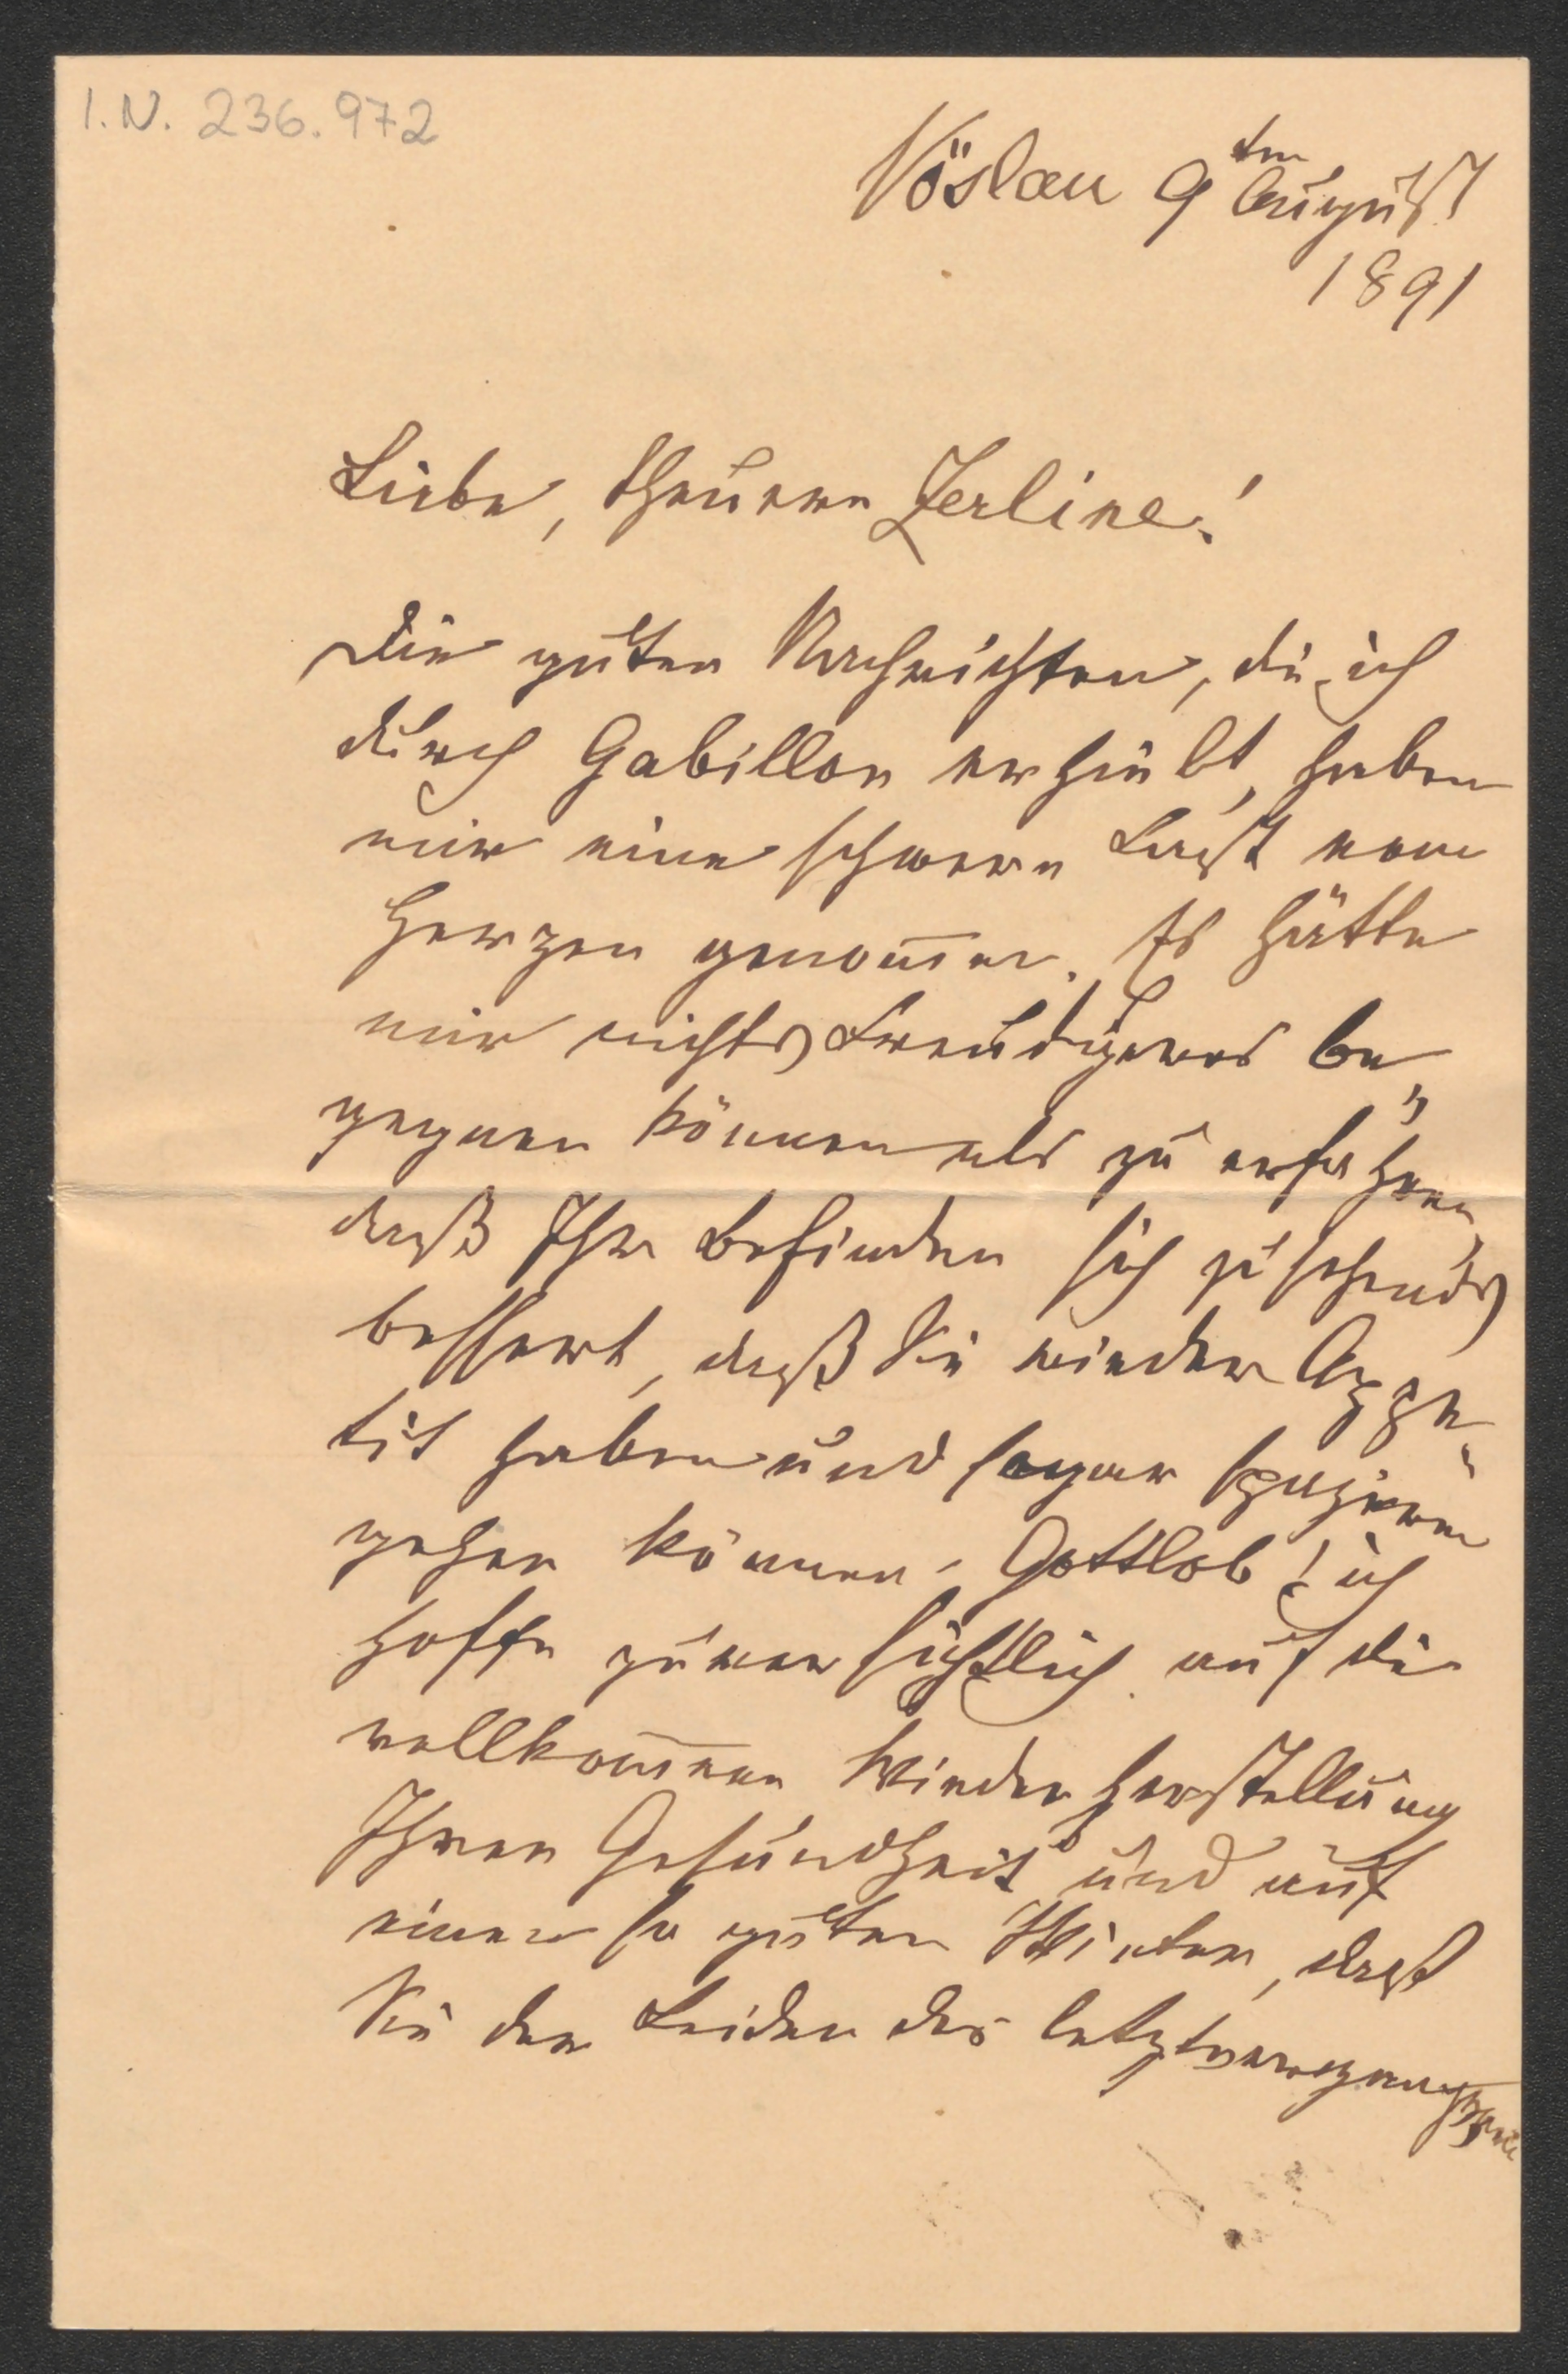 I.N. 236.972
Vöslau 9ten August
1891
Liebe, theuere Zerline!
Die guten Nachrichten, die ich
durch Gabillon erhielt, haben
mir eine schwere Last vom
Herzen genom̅en. Es hätte
mir nichts Freudigeres be„
gegnen können als zu erfahren,
daß Ihr Befinden sich zusehends
bessert, daß Sie wieder Appe„
tit haben und sogar spazieren
gehen können. Gottlob! ich
hoffe zuversichtlich auf die
vollkom̅ene Wiederherstellung
Ihrer Gesundheit und auf
einen so guten Winter, daß
Sie der Leiden des letztvergangenen